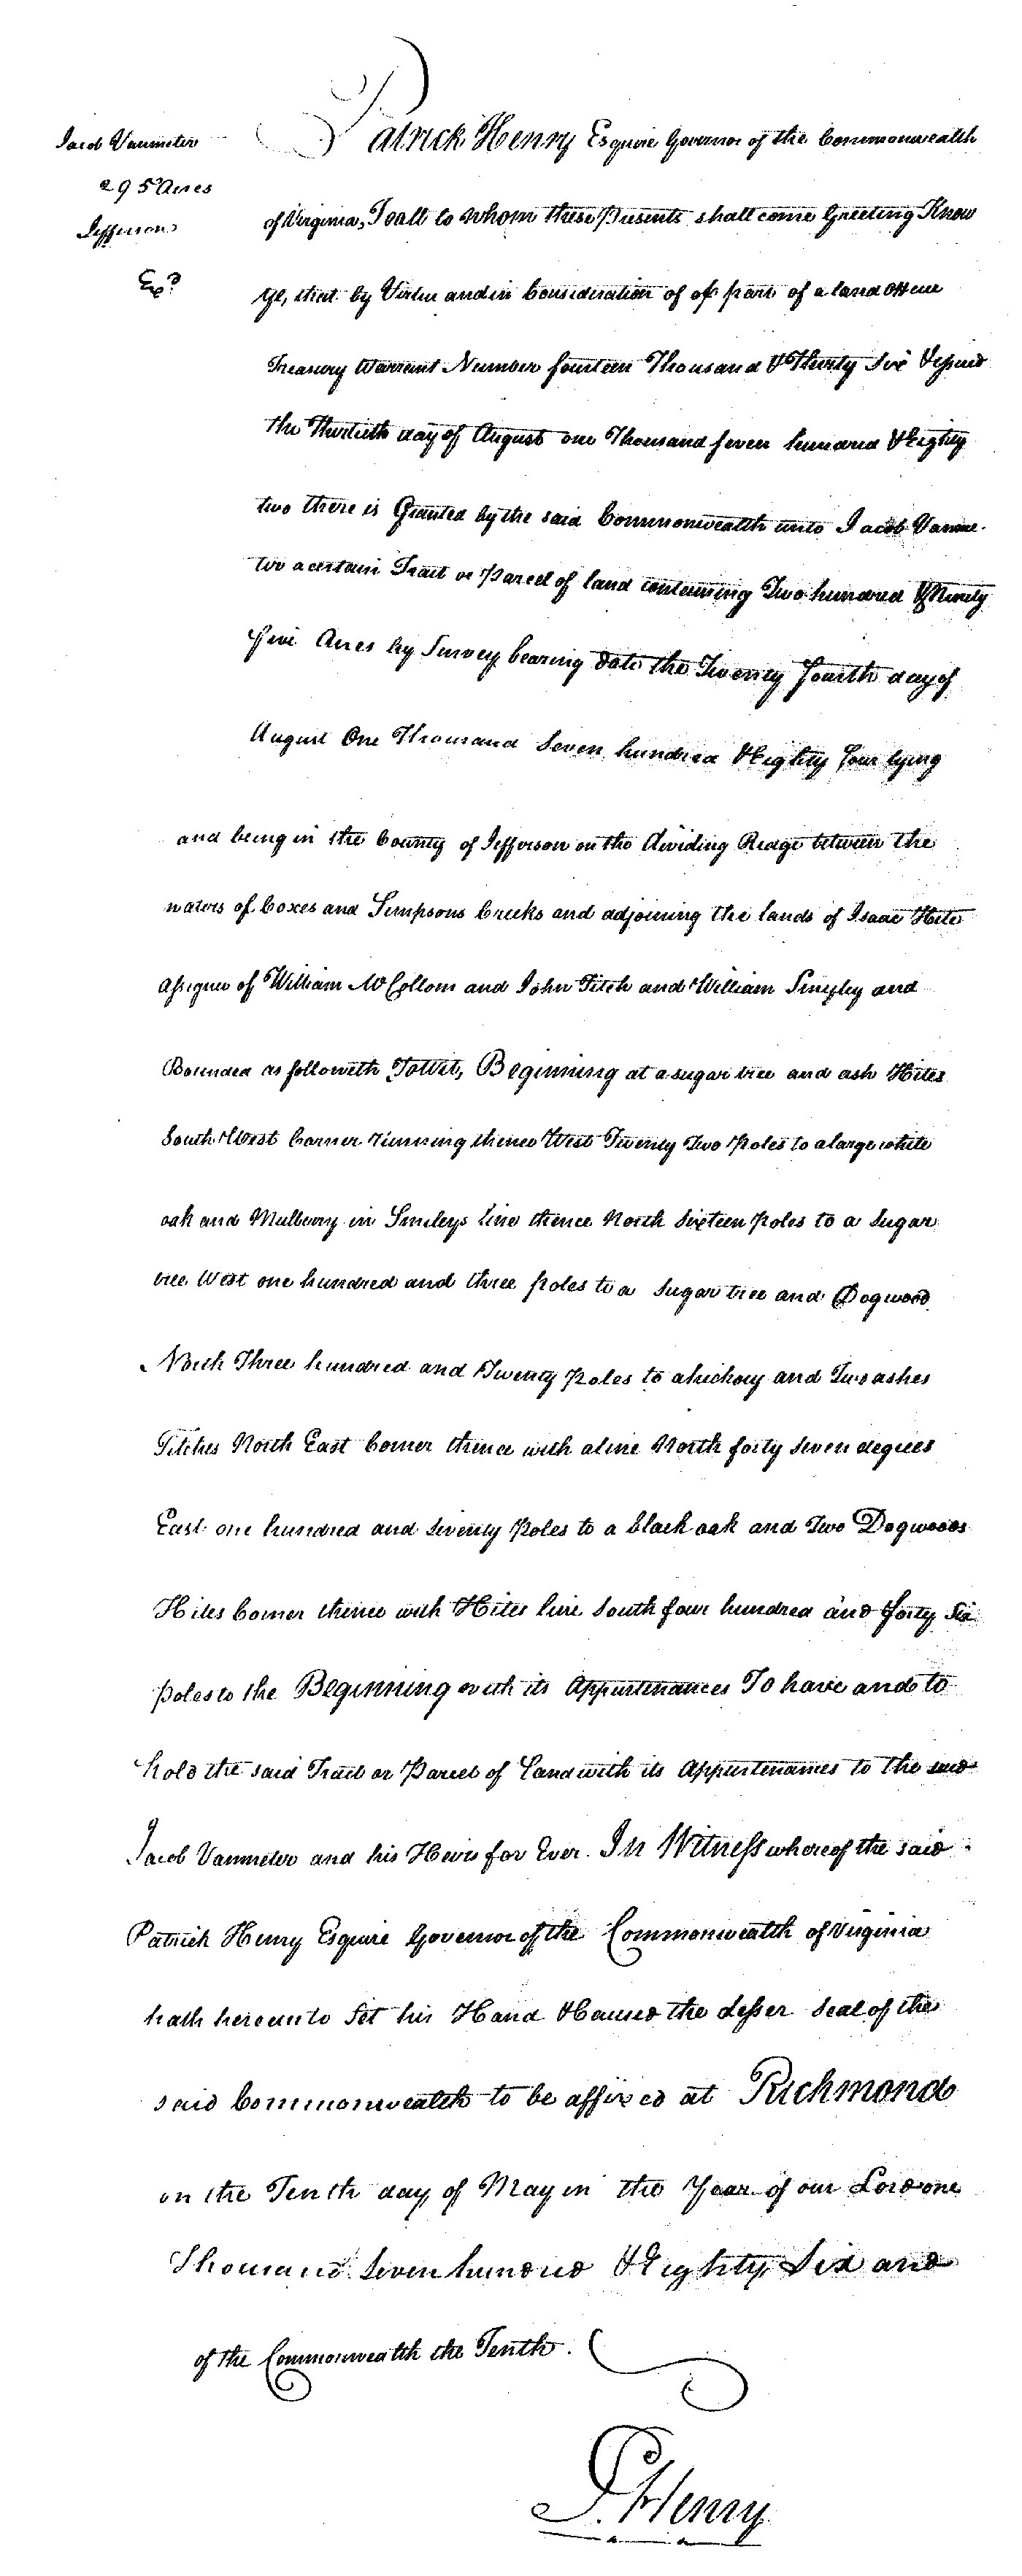 Jacob Vanmeter
295 Acres
Jefferson
Exd
Patrick Henry Esquire Governor of the Commonwealth
of Virginia, To all to whom these Presents shall come Greeting Know
Ye, that by Virtue and in Consideration of of part of a land Office
Treasury Warrant Number fourteen Thousand & Thirty Six & Issued
the Thirtieth day of August one Thousand seven hundred & Eighty
two there is Granted by the said Commonwealth unto Jacob Vanme-
ter a certain Tract or Parcel of land containing Two hundred & Ninety
five Acres by Survey bearing date the Twenty fourth day of
August One Thousand Seven hundred & Eighty four lying
and being in the County of Jefferson on the dividing Ridge between the
waters of Coxes and Simpsons Creeks and adjoining the lands of Isaac Hite
assignee of William McCollom and John Fitch and William Smyley and
Bounded as followeth Towit, Beginning at a sugar tree and ash Hites
South West Corner running thence West Twenty Two Poles to a large white
oak and Mulberry in Smileys line thence North Sixteen Poles to a Sugar
tree West one hundred and three poles to a Sugar tree and Dogwood
North Three hundred and Twenty Poles to a hickory and Two ashes
Fitches North East Corner thence with a line North forty seven degrees
East one hundred and seventy Poles to a black oak and Two Dogwoods
Hites Corner thence with Hites line South four hundred and forty Six
poles to the Beginning with its Appurtenances To have and to
hold the said Tract or Parcel of Land with its Appurtenances to the said
Jacob Vanmeter and his Heirs for Ever. In Witness whereof the said
Patrick Henry Esquire Governor of the Commonwealth of Virginia
hath hereunto Set his Hand & Caused the Lesser Seal of the
said Commonwealth to be affixed at Richmond
on the Tenth day of May in the Year of our Lord one
Thousand Seven hundred & Eighty Six and
of the Commonwealth the Tenth.
P. Henry